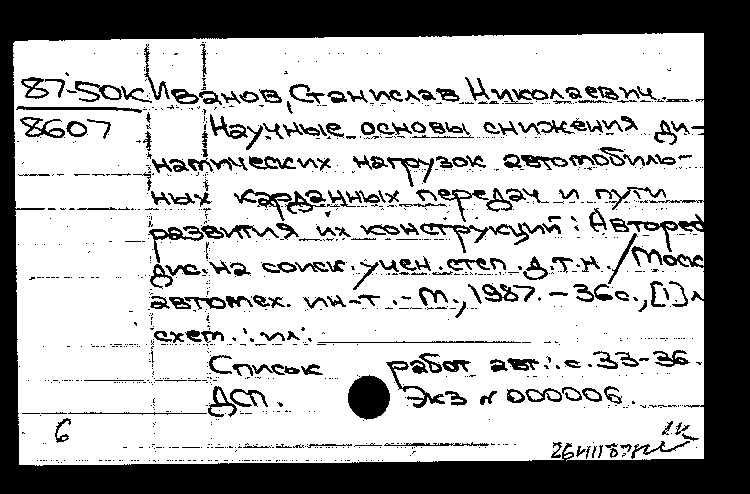 87-50к Иванов, Станислав Николаевич.
8607 Научные основы снижения ди-
намических нагрузок автомобиль-
ных карданных передач и пути
развития их конструкций: Автореф
дис. на соиск. учен. степ. д.т.н. / Моск
автомех. ин-т. - М., 1987. - 36с., [1]л
схем. : ил.
Список работ авт.: с. 33-36.
ДСП. Экз № 000006.
6